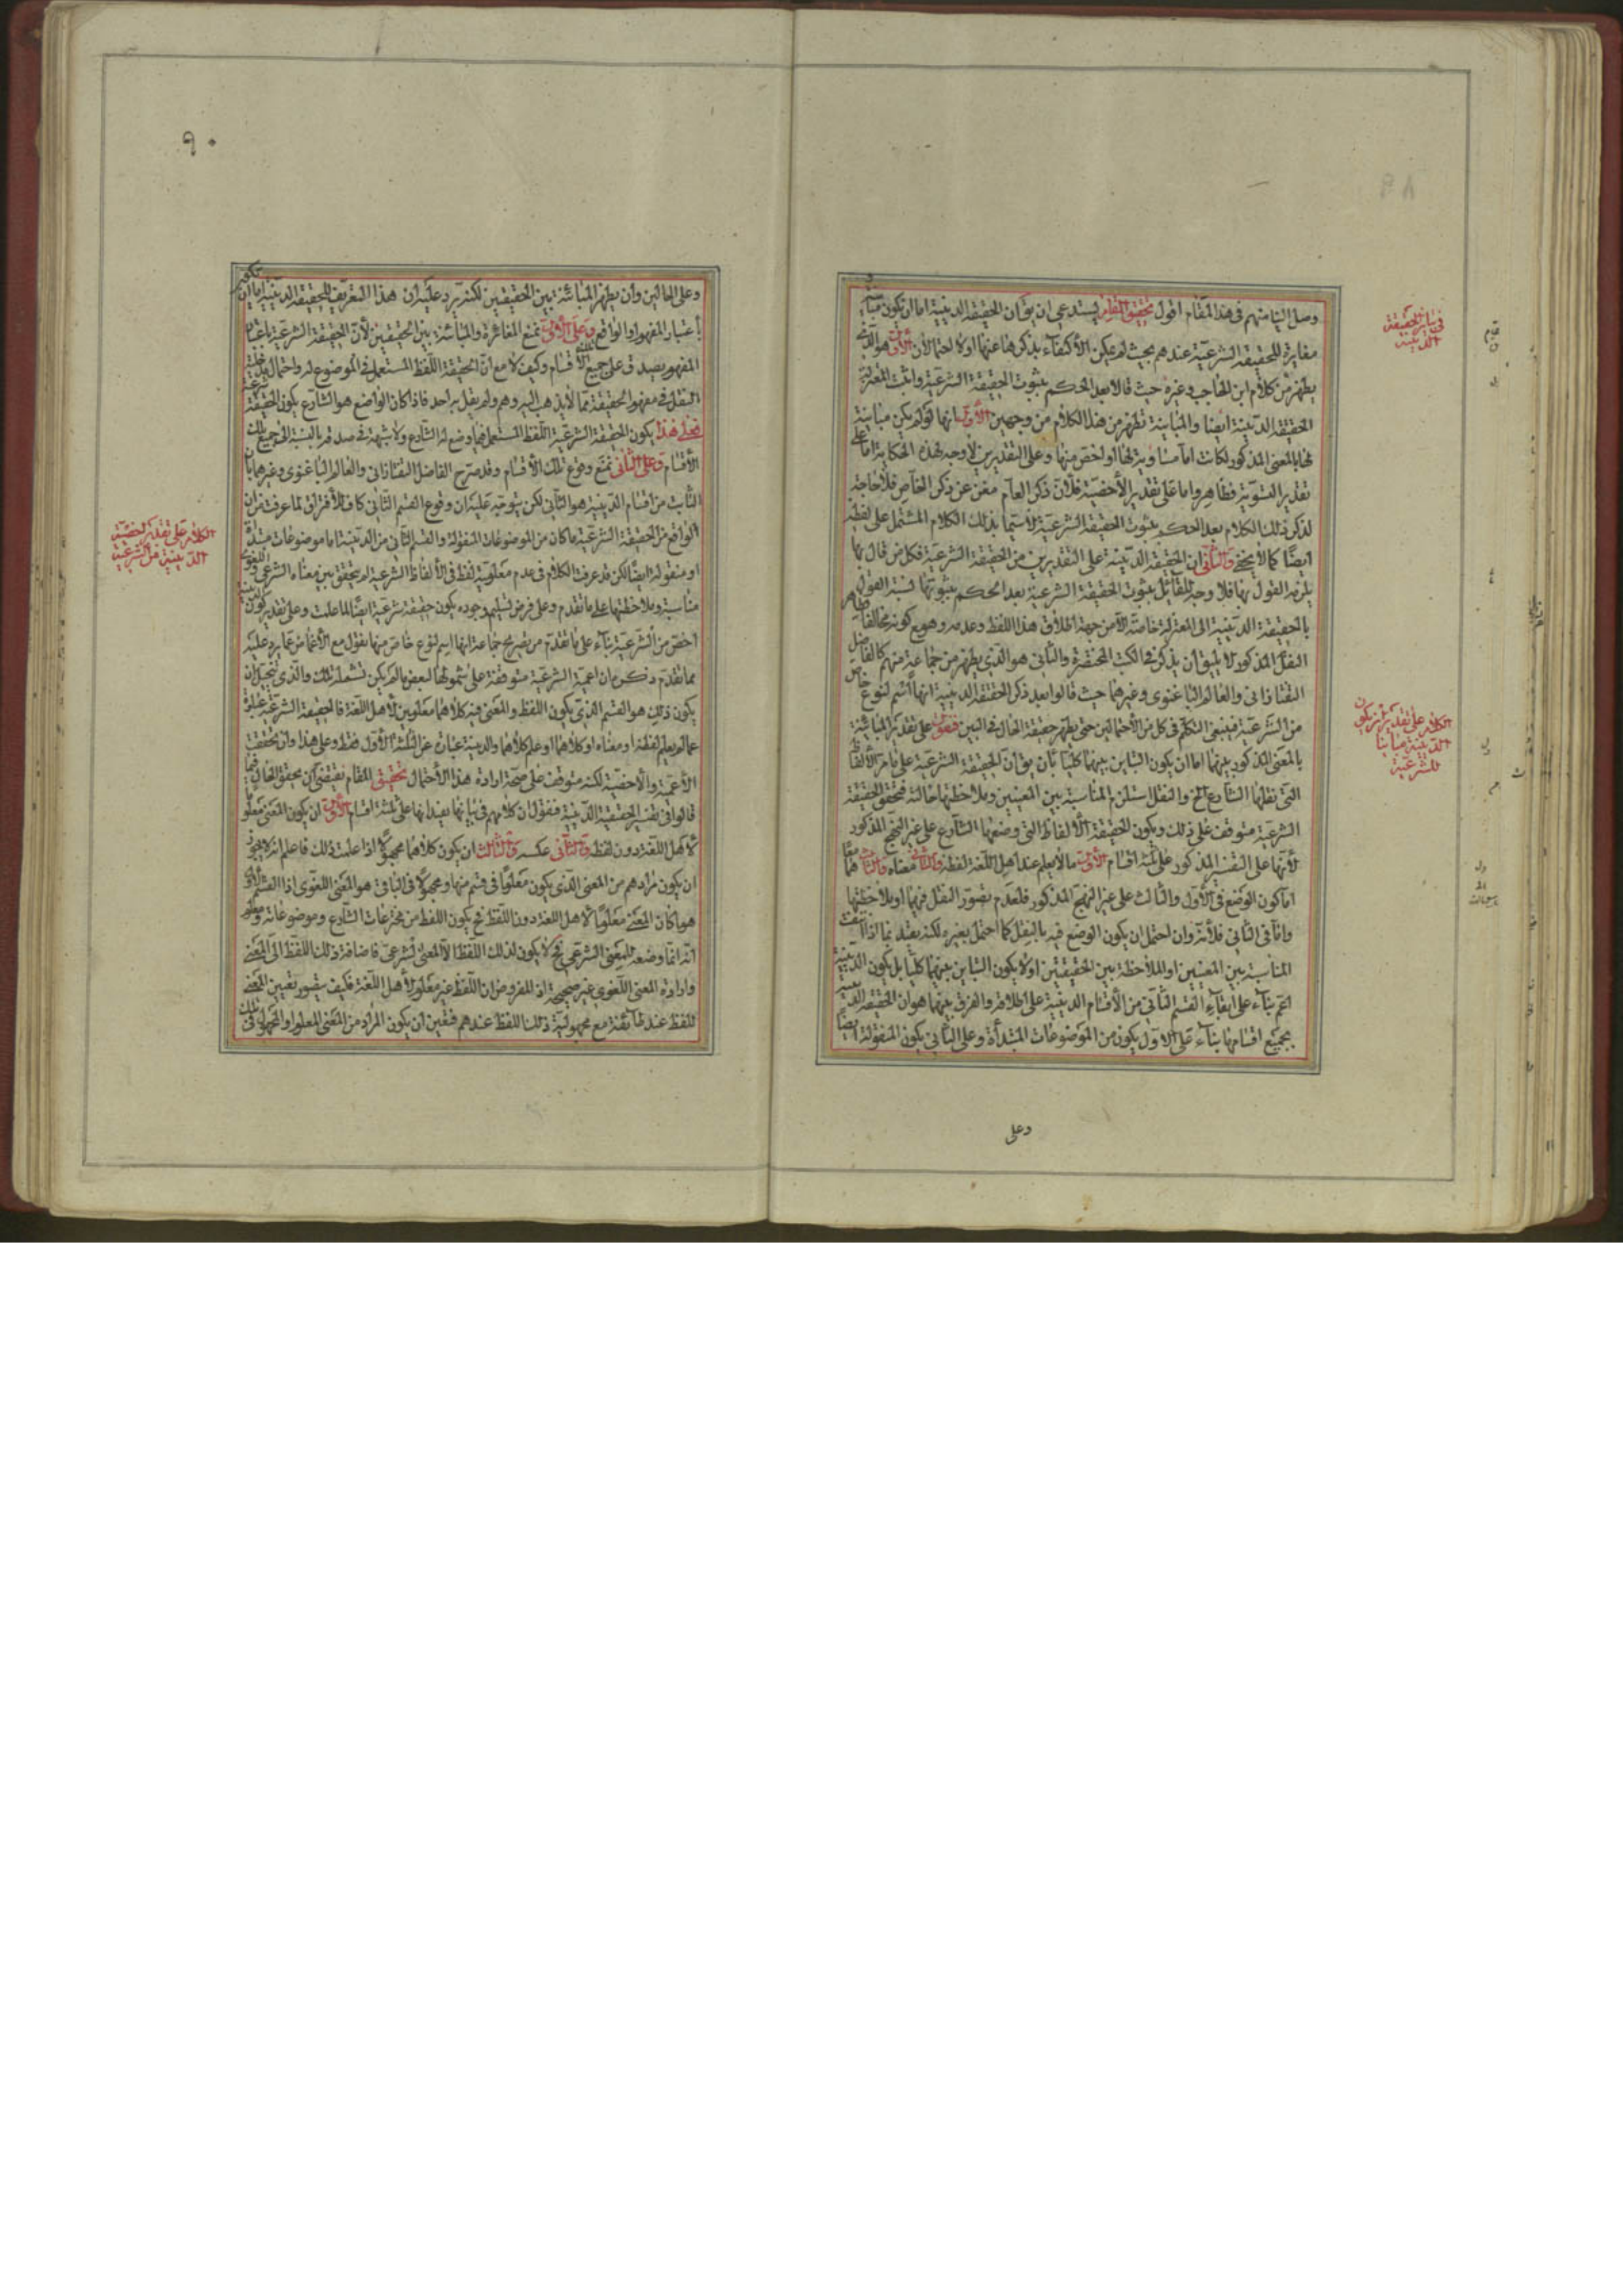 وصل الينا منهم فى هذا المقام اقول تحقيق المقام يستدعى ان يق ان الحقيقة الدينية اما ان تكون
مغايرة للحقيقة الشرعية عندهم بحيث لم يمكن الاكتفاء بذكرها عنها اولا احتمالان الاول هو الذى
يظهر من كلام ابن الحاجب وغيره حيث قالا بعد الحكم بثبوت الحقيقة الشرعية واثبت المعتزلة
الحقيقة الدينية ايضا والمباينة تظهر من هذا الكلام من وجهين الاول انها لو لم يكن مباينة
لها بالمعنى المذكور لكانت اما مساوية لها او اخص منها وعلى التقديرين لا وجه لهذه الحكاية اما على
تقدير التسوية فظاهر واما على تقدير الأخصية فلان ذكر العام مغن عن ذكر الخاص فلا حاجة
لذكر ذلك الكلام بعد الحكم بثبوت الحقيقة الشرعية لا سيما بذلك الكلام المشتمل على لفظة
ايضا كما لا يخفى والثانى ان الحقيقة الدينية على التقديرين من الحقيقة الشرعية فكل من قال بها
يلزمه القول بها فلا وجه للقائل بثبوت الحقيقة الشرعية بعد الحكم بثبوتها نسبة القول
بالحقيقة الدينية الى المعتزلة خاصة الا من جهة اطلاق هذا اللفظ وعدمه وهو مع كونه مخالفا لظاهر
النقل المذكور لا يليق ان يذكر فى الكتب المختصرة والثانى هو الذى يظهر من جماعة منهم كالفاضل
التفتازانى والعالم الباغنوى وغيرهما حيث قالوا بعد ذكر الحقيقة الدينية انها اسم لنوع خاص
من الشرعية فينبغى التكلم فى كل من الاحتمالين حتى يظهر حقيقة الحال فى البين فنقول على تقدير المباينة
بالمعنى المذكور بينهما اما ان يكون التباين بينهما كليا بان يق ان الحقيقة الشرعية على ما مر الألفاظ
التى نقلها الشارع الخ والنقل يستلزم المناسبة بين المعنيين وملاحظتها حالته فتحقق الحقيقة
الشرعية متوقف على ذلك ويكون الحقيقة الألفاظ التى وضعها الشارع على غير النهج المذكور
لأنها على التفسير المذكور على ثلثة اقسام الأول ما لا يعلم عند اهل اللغة لفظه والثانى معناه والثالث هما معا
اما كون الوضع فى الأول والثالث على غير النهج المذكور فلعدم تصور النقل فيهما او ملاحظتها
واما فى الثانى فلأنه وان احتمل ان يكون الوضع فيه بالنقل كما احتمل بغيره لكنه يقيد بما اذا انتفت
المناسبة بين المعنيين او الملاحظة بين الحقيقتين اولا يكون التباين بينهما كليا بل يكون الدينية
اعم بناء على ابقاء القسم الثانى من الأقسام الدينية على اطلاقه والفرق بينهما هو ان الحقيقة الدينية
بجميع اقسامها بناء على الاول يكون من الموضوعات المبتدأة وعلى الثانى يكون المنقولة ايضا
وعلى
فى بيان الحقيقة
الدينية
الكلام على تقدير ان يكون
الدينية مباينا
للشرعية
٩٠
وعلى الحالين وان يظهر المباينة بين الحقيقتين لكنه يرد عليه ان هذا التعريف للحقيقة الدينية اما ان
باعتبار المفهوم او الواقع وعلى الأول نمنع المغائرة والمباينة بين الحقيقتين لأن الحقيقة الشرعية باعتبار
المفهوم يصدق على جميع الاقسام وكيف لا مع ان الحقيقة اللفظ المستعمل فى الموضوع له واحتمال
النقل فى مفهوم الحقيقة مما لا يذهب اليه وهم ولم يقل به احد فاذا كان الواضع هو الشارع يكون الحقيقة شرعية
فعلى هذا يكون الحقيقة الشرعية اللفظ المستعمل فيما وضع له الشارع ولا شبهة فى صدقه بالنسبة الى جميع تلك
الأقسام وعلى الثانى نمنع وقوع تلك الأقسام وقد صرح الفاضل التفتازانى والعالم الباغنوى وغيرهما بان
الثابت من اقسام الدينية هو الثانى لكن يتوجه عليه ان وقوع القسم الثانى كاف للافتراق لما عرفت من ان
الواقع من الحقيقة الشرعية ما كان من الموضوعات المنقولة والقسم الثانى من الدينية اما موضوعات مبتدأة
او منقولة ايضا لكن قد عرفت الكلام فى عدم معلومية لفظ فى الألفاظ الشرعية لم يتحقق بين معناه الشرعى واللغوى
مناسبة وملاحظتها على ما تقدم وعلى فرض تسليم وجوده يكون حقيقة شرعية ايضا لما علمت وعلى تقدير كون الدينية
اخص من الشرعية بناء على ما تقدم من تصريح جماعة انها اسم لنوع خاص منها نقول مع الأغماض عما يرد عليه
بما تقدم ذكره ان اعمية الشرعية متوقفة على شمولها لبعض ما لم يكن تشمله تلك والذى يتخيل ان
يكون ذلك هو القسم الذى يكون اللفظ والمعنى فيه كلاهما معلومين لأهل اللغة فالحقيقة الشرعية عبارة
عما لم يعلم لفظه او معناه او كلاهما او علم كلاهما والدينية عبارة عن الثلثة الأول فقط وعلى هذا وان تحققت
الأعمية والأخصية لكنه متوقف على صحة ارادة هذا الاحتمال تحقيق المقام يقتضى ان يحقق الحال فيما
قالوا فى تفسير الحقيقة الدينية فنقول ان كلامهم فى بيانها يفيد انها على ثلثة اقسام الأول ان يكون المعنى معلوما
لأهل اللغة دون لفظه والثانى عكسه والثالث ان يكون كلاهما مجهولا اذا علمت ذلك فاعلم انه لا يجوز
ان يكون مرادهم من المعنى الذى يكون معلوما فى قسم منها ومجهولا فى الباقى هو المعنى اللغوى اذ القسم الأول
هو ما كان المعنى معلوما لأهل اللغة دون اللفظ فح يكون اللفظ من مخترعات الشارع وموضوعاته ومعلوم
انه انما وضعه للمعنى الشرعى فح لا يكون لذلك اللفظ الا المعنى الشرعى فاضافة ذلك اللفظ الى المعنى
وارادة المعنى اللغوى غير صحيحة اذ المفروض ان اللفظ غير معلوم لأهل اللغة فكيف يتصور تعيين المعنى
للفظ عند طائفة مع مجهولية ذلك اللفظ عندهم فتعين ان يكون المراد من المعنى المعلوم او المجهول فى تلك
الكلام على تقدير اخصية
الدينية من الشرعية